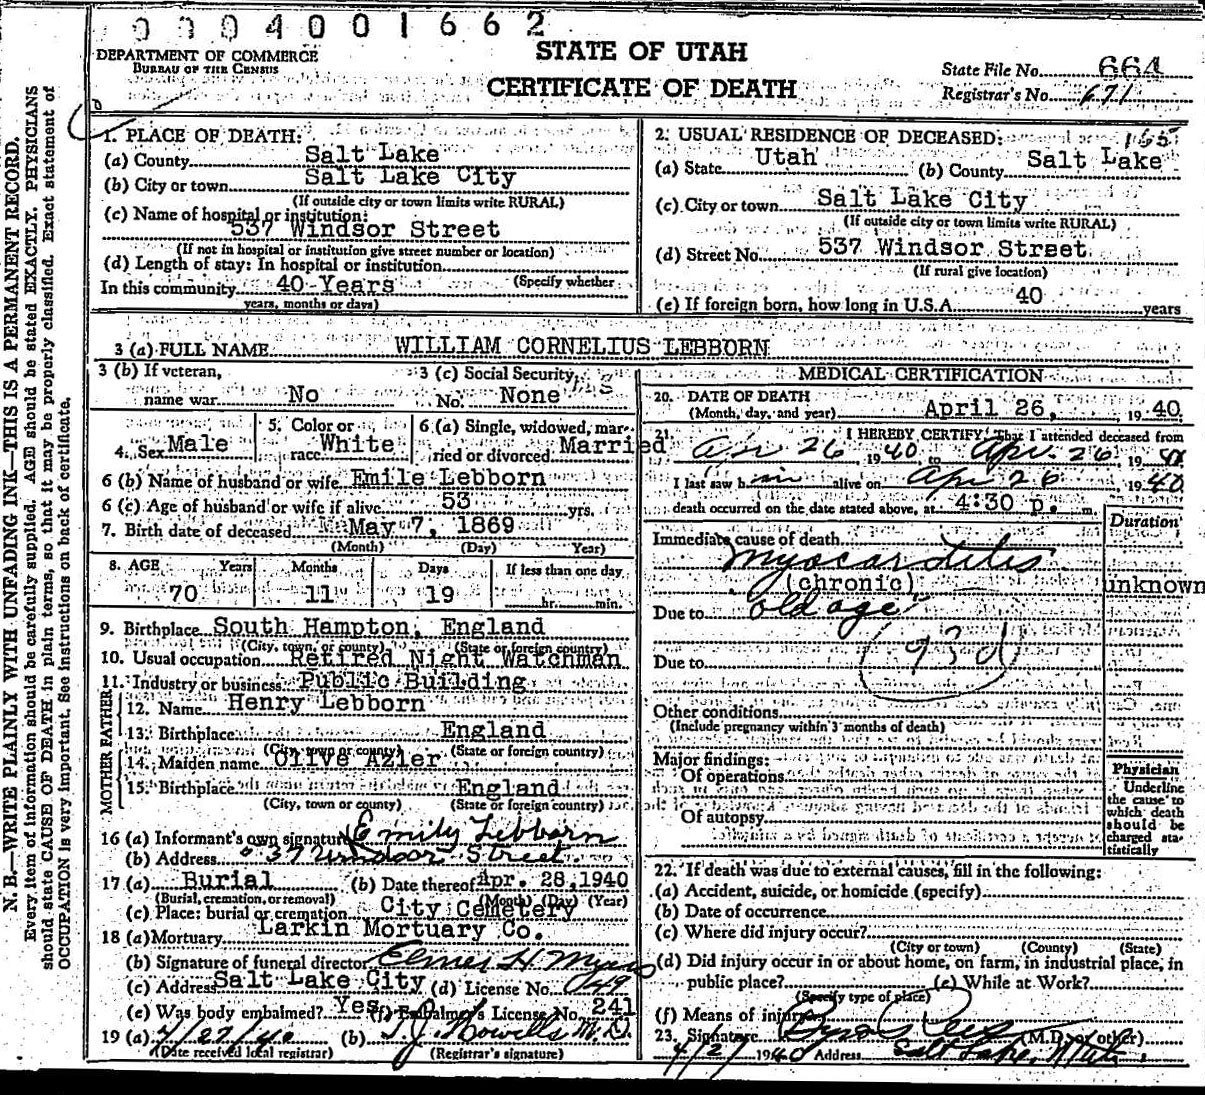 0004001662
DEPARTMENT OF COMMERCE
BUREAU OF THE CENSUS
STATE OF UTAH
CERTIFICATE OF DEATH
State File No. 664
Registrar's No. 671
N. B.—WRITE PLAINLY WITH UNFADING INK—THIS IS A PERMANENT RECORD.
Every item of information should be carefully supplied. AGE should be stated EXACTLY. PHYSICIANS
should state CAUSE OF DEATH in plain terms, so that it may be properly classified. Exact statement of
OCCUPATION is very important. See instructions on back of certificate.
1. PLACE OF DEATH:
(a) County Salt Lake
(b) City or town Salt Lake City
(If outside city or town limits write RURAL)
(c) Name of hospital or institution:
537 Windsor Street
(If not in hospital or institution give street number or location)
(d) Length of stay: In hospital or institution
(Specify whether
In this community 40 Years
years, months or days)
2. USUAL RESIDENCE OF DECEASED: 165
(a) State Utah (b) County Salt Lake
(c) City or town Salt Lake City
(If outside city or town limits write RURAL)
(d) Street No. 537 Windsor Street
(If rural give location)
(e) If foreign born, how long in U.S.A. 40 years
3 (a) FULL NAME WILLIAM CORNELIUS LEBBORN
3 (b) If veteran,
name war No
3 (c) Social Security
No. None
4. Sex Male
5. Color or
race White
6 (a) Single, widowed, mar-
ried or divorced Married
6 (b) Name of husband or wife Emile Lebborn
6 (c) Age of husband or wife if alive 53 yrs.
7. Birth date of deceased May 7, 1869
(Month) (Day) Year)
8. AGE Years Months Days If less than one day
70 11 19 hr. min.
9. Birthplace South Hampton, England
(City, town, or county) (State or foreign country)
10. Usual occupation Retired Night Watchman
11. Industry or business Public Building
FATHER
12. Name Henry Lebborn
13. Birthplace England
(City, town or county) (State or foreign country)
MOTHER
14. Maiden name Olive Azler
15. Birthplace England
(City, town or county) (State or foreign country)
16 (a) Informant's own signature Emily Lebborn
(b) Address 37 Windsor Street
17 (a) Burial (b) Date thereof Apr. 28, 1940
(Burial, cremation, or removal) (Month) (Day) (Year)
(c) Place: burial or cremation City Cemetery
18 (a) Mortuary Larkin Mortuary Co.
(b) Signature of funeral director Elmer H Myers
(c) Address Salt Lake City (d) License No.
(e) Was body embalmed? Yes (f) Embalmer's License No. 241
19 (a) 4/27/40 (b) T. J. Howells M. D.
(Date received local registrar) (Registrar's signature)
MEDICAL CERTIFICATION
20. DATE OF DEATH
(Month, day, and year) April 26, 1940
21. I HEREBY CERTIFY, That I attended deceased from
Apr 26 1940 to Apr. 26, 1940
I last saw him alive on Apr 26 1940
death occurred on the date stated above, at 4:30 p. m.
Duration
Immediate cause of death
Myocarditis
(chronic) unknown
Due to old age
Due to (93d)
Other conditions
(Include pregnancy within 3 months of death)
Major findings:
Of operations
Of autopsy
Physician
Underline
the cause to
which death
should be
charged sta-
tistically
22. If death was due to external causes, fill in the following:
(a) Accident, suicide, or homicide (specify)
(b) Date of occurrence
(c) Where did injury occur?
(City or town) (County) (State)
(d) Did injury occur in or about home, on farm, in industrial place, in
public place? (e) While at Work?
(Specify type of place)
(f) Means of injury
23. Signature (M.D. or other)
4/27 1940 Address Salt Lake, Utah